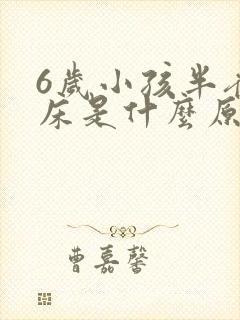 6歲小孩半
床是什麼原
曹嘉馨